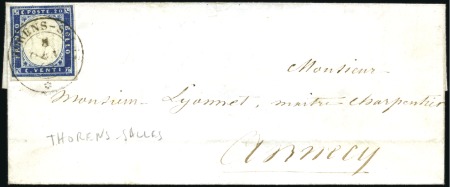 C. POSTE 20
FRANCO
BOLLO
C. VENTI
RENS-S
8
Monsieur
Monsieur Lyonnet, maître-charpentier
THORENS-SALLES
Annecy